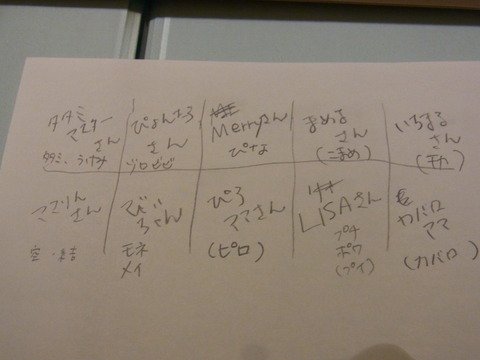 タタミ
マスター
さん
タタミ、うけみ
ぴょんたろ
さん
ゾロビビ
Merryさん
ぴな
まめま
さん
(こまめ)
いちまる
さん
さん
空・結
でじ
さん
モネ
メイ
ぴろ
ママさん
(ピロ)
LISAさん
プチ
ポワ
(プイ)
カバロ
ママ
(カバロ)